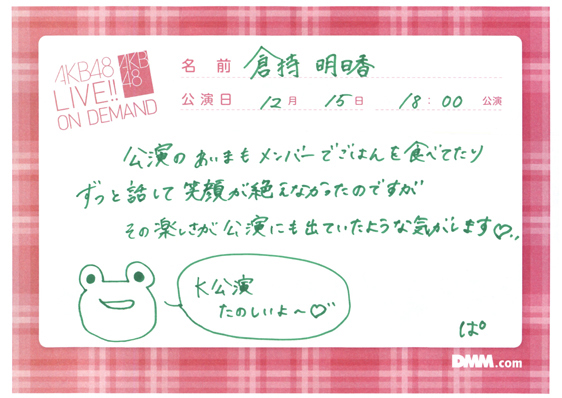 AKB48
LIVE!!
ON DEMAND
AKB
48
名前 倉持 明日香
公演日 12月 15日 18:00 公演
公演のあいまもメンバーでごはんを食べてたり
ずっと話して笑顔が絶えなかったのですが
その楽しさが公演にも出ていたような気がします♡
K公演
たのしいよ〜♡
ぱ。
DMM.com